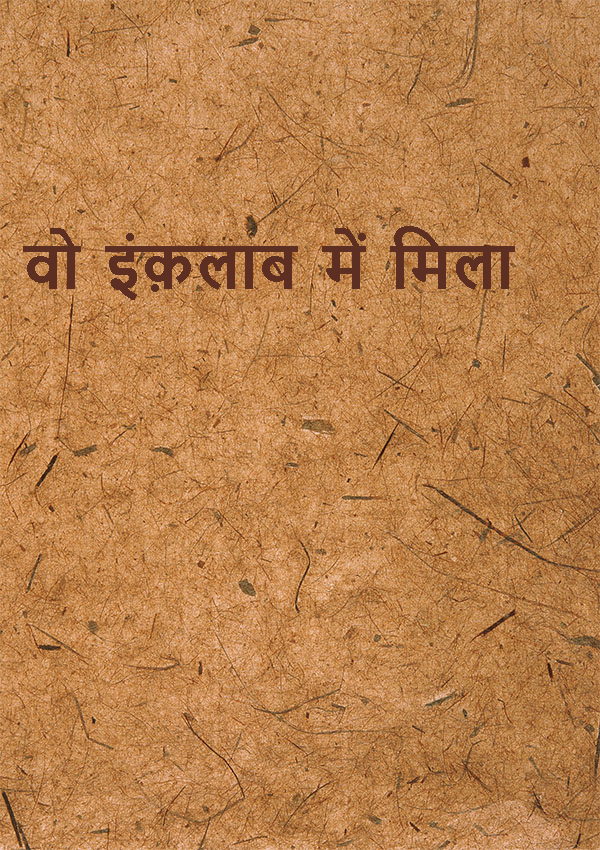 वो इंक़लाब में मिला